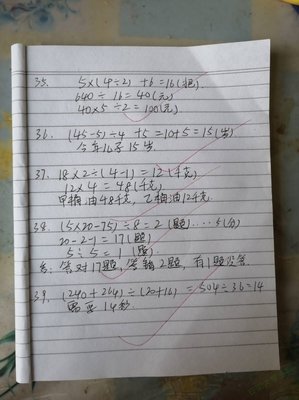 35. 5×(4÷2)+6=16(把)
640÷16=40(元)
40×5÷2=100(元)
36. (45-5)÷4+5=10+5=15(岁)
今年儿子15岁.
37. 18×2÷(4-1)=12(千克)
12×4=48(千克)
甲桶油48千克,乙桶油12千克.
38. (5×20-75)÷8=2(题)....5(分)
20-2-1=17(题)
5÷5=1(题)
答:答对17题,答错2题,有1题没答.
39. (240+264)÷(20+16)=504÷36=14
需要14秒.